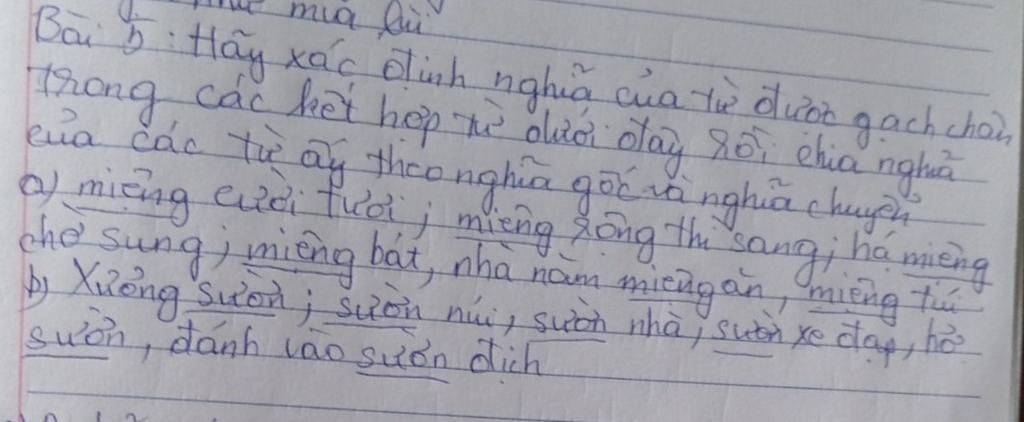 mùa lũ
Bài 5: Hãy xác định nghĩa của từ được gạch chân
trong các kết hợp từ dưới đây rồi chia nghĩa
của các từ ấy theo nghĩa gốc và nghĩa chuyển
a) miệng cười tươi; miệng rộng thì sang; há miệng
chờ sung; miệng bát, nhà năm miệng ăn, miệng túi
b) Xương sườn; sườn núi, sườn nhà, sườn xe đạp, hở
sườn, đánh vào sườn địch